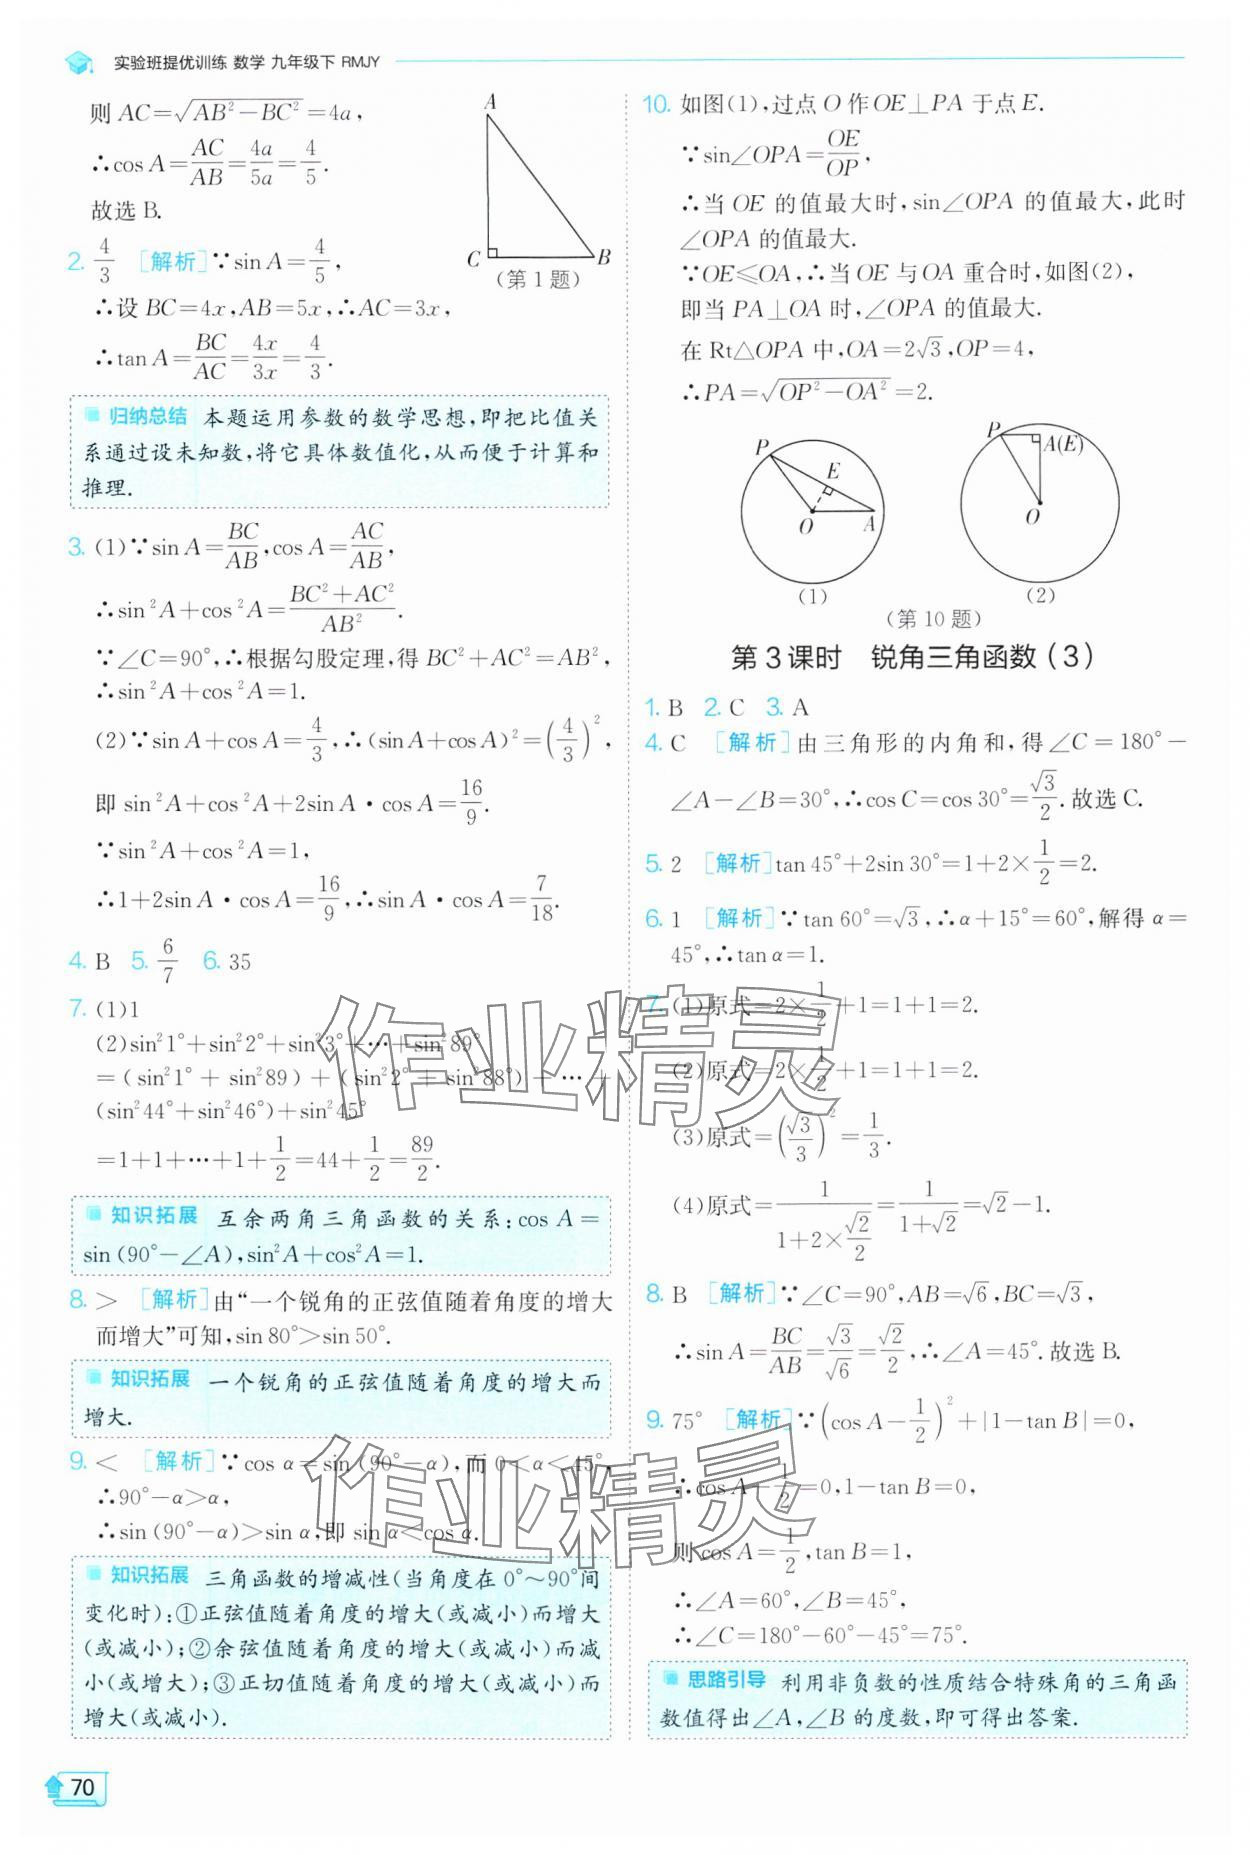 实验班提优训练 数学 九年级下 RMJY
则 AC=√(AB²−BC²)=4a,
∴cos A=AC/AB=4a/5a=4/5.
故选 B.
A
C
B
(第 1 题)
2. 4/3 [解析]∵sin A=4/5,
∴设 BC=4x,AB=5x,∴AC=3x,
∴tan A=BC/AC=4x/3x=4/3.
归纳总结 本题运用参数的数学思想,即把比值关
系通过设未知数,将它具体数值化,从而便于计算和
推理.
3. (1)∵sin A=BC/AB,cos A=AC/AB,
∴sin²A+cos²A=(BC²+AC²)/AB².
∵∠C=90°,∴根据勾股定理,得 BC²+AC²=AB²,
∴sin²A+cos²A=1.
(2)∵sin A+cos A=4/3,∴(sin A+cos A)²=(4/3)²,
即 sin²A+cos²A+2sin A·cos A=16/9.
∵sin²A+cos²A=1,
∴1+2sin A·cos A=16/9,∴sin A·cos A=7/18.
4. B 5. 6/7 6. 35
7. (1)1
(2)sin²1°+sin²2°+sin²3°+…+sin²89°
=(sin²1°+sin²89)+(sin²2°+sin²88°)+…+
(sin²44°+sin²46°)+sin²45°
=1+1+…+1+1/2=44+1/2=89/2.
知识拓展 互余两角三角函数的关系:cos A=
sin(90°−∠A),sin²A+cos²A=1.
8. > [解析]由“一个锐角的正弦值随着角度的增大
而增大”可知,sin 80°>sin 50°.
知识拓展 一个锐角的正弦值随着角度的增大而
增大.
9. < [解析]∵cos α=sin(90°−α),而 0<α<45°,
∴90°−α>α,
∴sin(90°−α)>sin α,即 sin α<cos α.
知识拓展 三角函数的增减性(当角度在 0°～90°间
变化时):①正弦值随着角度的增大(或减小)而增大
(或减小);②余弦值随着角度的增大(或减小)而减
小(或增大);③正切值随着角度的增大(或减小)而
增大(或减小).
70
10. 如图(1),过点 O 作 OE⊥PA 于点 E.
∵sin∠OPA=OE/OP,
∴当 OE 的值最大时,sin∠OPA 的值最大,此时
∠OPA 的值最大.
∵OE≤OA,∴当 OE 与 OA 重合时,如图(2),
即当 PA⊥OA 时,∠OPA 的值最大.
在 Rt△OPA 中,OA=2√3,OP=4,
∴PA=√(OP²−OA²)=2.
P
E
O
A
(1)
P
A(E)
O
(2)
(第 10 题)
第 3 课时 锐角三角函数(3)
1. B 2. C 3. A
4. C [解析]由三角形的内角和,得∠C=180°−
∠A−∠B=30°,∴cos C=cos 30°=√3/2.故选 C.
5. 2 [解析]tan 45°+2sin 30°=1+2×1/2=2.
6. 1 [解析]∵tan 60°=√3,∴α+15°=60°,解得 α=
45°,∴tan α=1.
7. (1)原式=2×1/2+1=1+1=2.
(2)原式=2×1/2+1=1+1=2.
(3)原式=(√3/3)²=1/3.
(4)原式=1/(1+2×√2/2)=1/(1+√2)=√2−1.
8. B [解析]∵∠C=90°,AB=√6,BC=√3,
∴sin A=BC/AB=√3/√6=√2/2,∴∠A=45°.故选 B.
9. 75° [解析]∵(cos A−1/2)²+|1−tan B|=0,
∴cos A−1/2=0,1−tan B=0,
则 cos A=1/2,tan B=1,
∴∠A=60°,∠B=45°,
∴∠C=180°−60°−45°=75°.
思路引导 利用非负数的性质结合特殊角的三角函
数值得出∠A,∠B 的度数,即可得出答案.
作业精灵
作业精灵